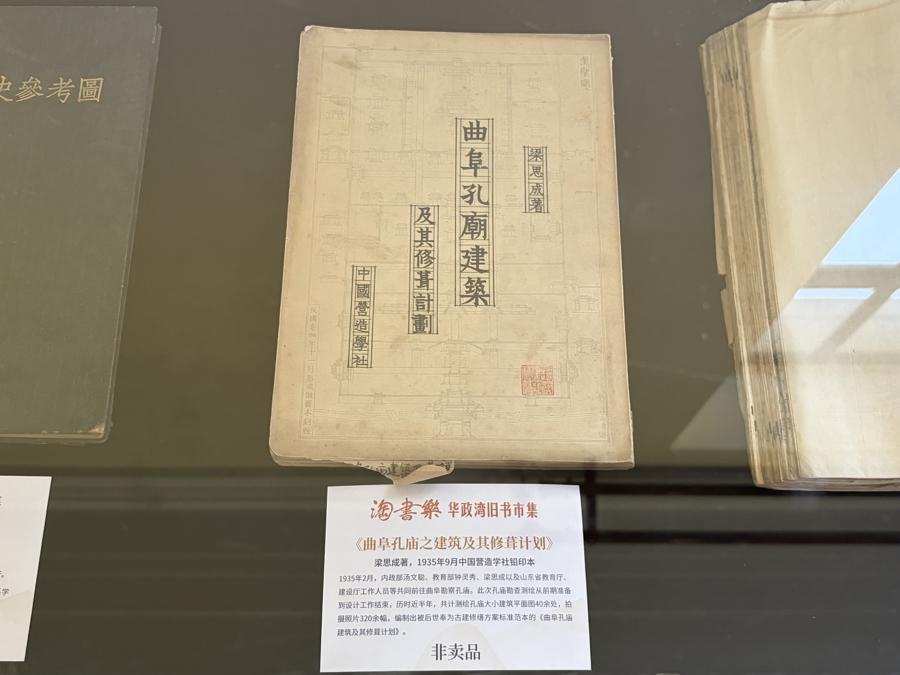 史參考圖
梁思成著
曲阜孔廟建築
及其修葺計劃
中國營造學社
淘書樂 华政湾旧书市集
《曲阜孔庙之建筑及其修葺计划》
梁思成著，1935年9月中国营造学社铅印本
1935年2月，内政部汤文聪、教育部钟灵秀、梁思成以及山东省教育厅、
建设厅工作人员等共同前往曲阜勘察孔庙。此次孔庙勘查测绘从前期准备
到设计工作结束，历时近半年，共计测绘孔庙大小建筑平面图40余处，拍
摄照片320余幅，编制出被后世奉为古建修缮方案标准范本的《曲阜孔庙
建筑及其修葺计划》。
非卖品